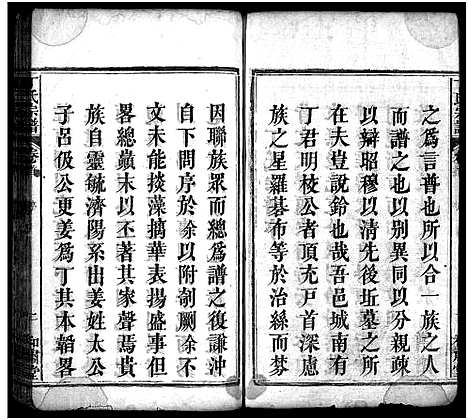 之爲言普也所以合一族之人
而譜之也以別異同以分親疎
以辯昭穆以清先後坵墓之所
在夫豈說鈴也哉吾邑城南有
丁君明校公者頂充戸首深慮
族之星羅碁布等於治絲而棼
丁氏宗譜
因聯族眾而總爲譜之復謙沖
自下問序於余以附剞劂余不
文未能掞藻摛華表揚盛事但
畧總巔末以丕著其家聲焉貴
族自靈毓濟陽系出姜姓太公
子呂伋公更姜爲丁其本韜畧